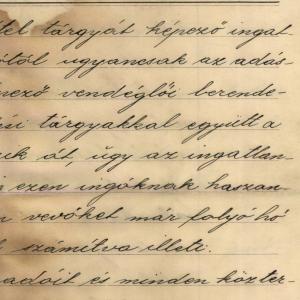 tel tárgyát képező ingat-
ától ugyancsak az adás-
pező vendéglői berende-
ési tárgyakkal együtt a
uk át, úgy az ingatlan-
ezen ingóknak haszon-
vevőket már folyó hó
számítva illeti.
adóit és minden közter-